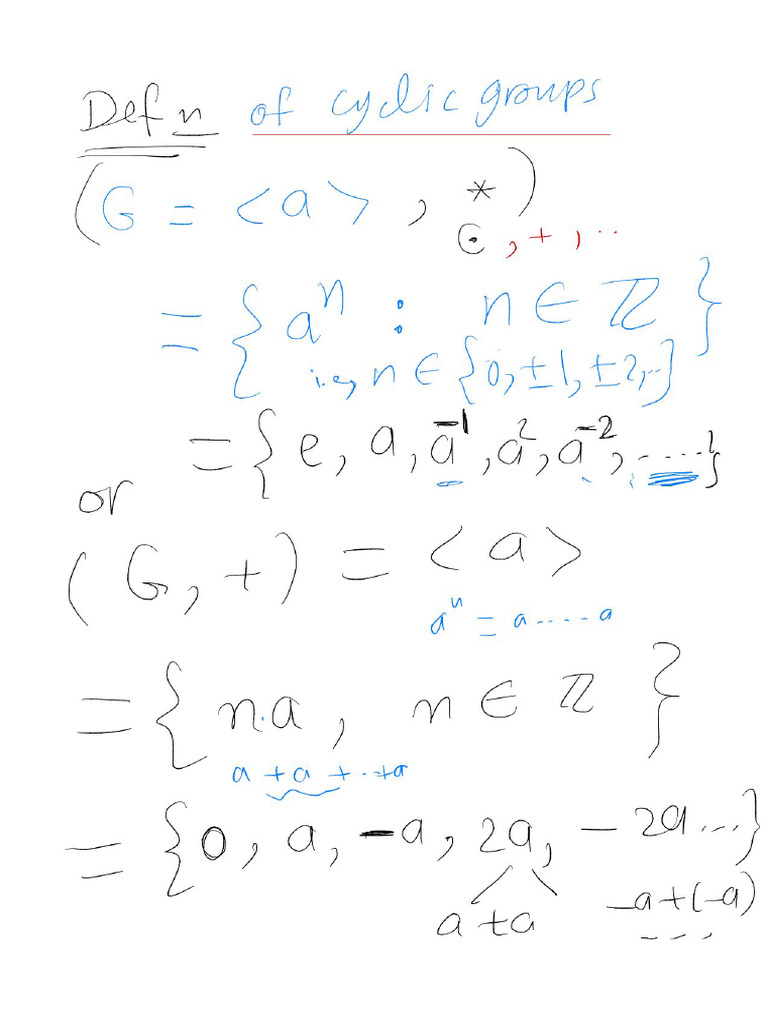 Defn of cyclic groups
(G = <a> , *)
⊙ , + , ..
= { aⁿ : n ∈ ℤ }
i.e, n ∈ {0, ±1, ±2, ..}
= { e, a, a⁻¹, a², a⁻², ..... }
or
(G, +) = <a>
aⁿ = a ..... a
= { n.a , n ∈ ℤ }
a + a + ... + a
= { 0, a, -a, 2a, -2a ... }
a + a -a + (-a)
- - - ,